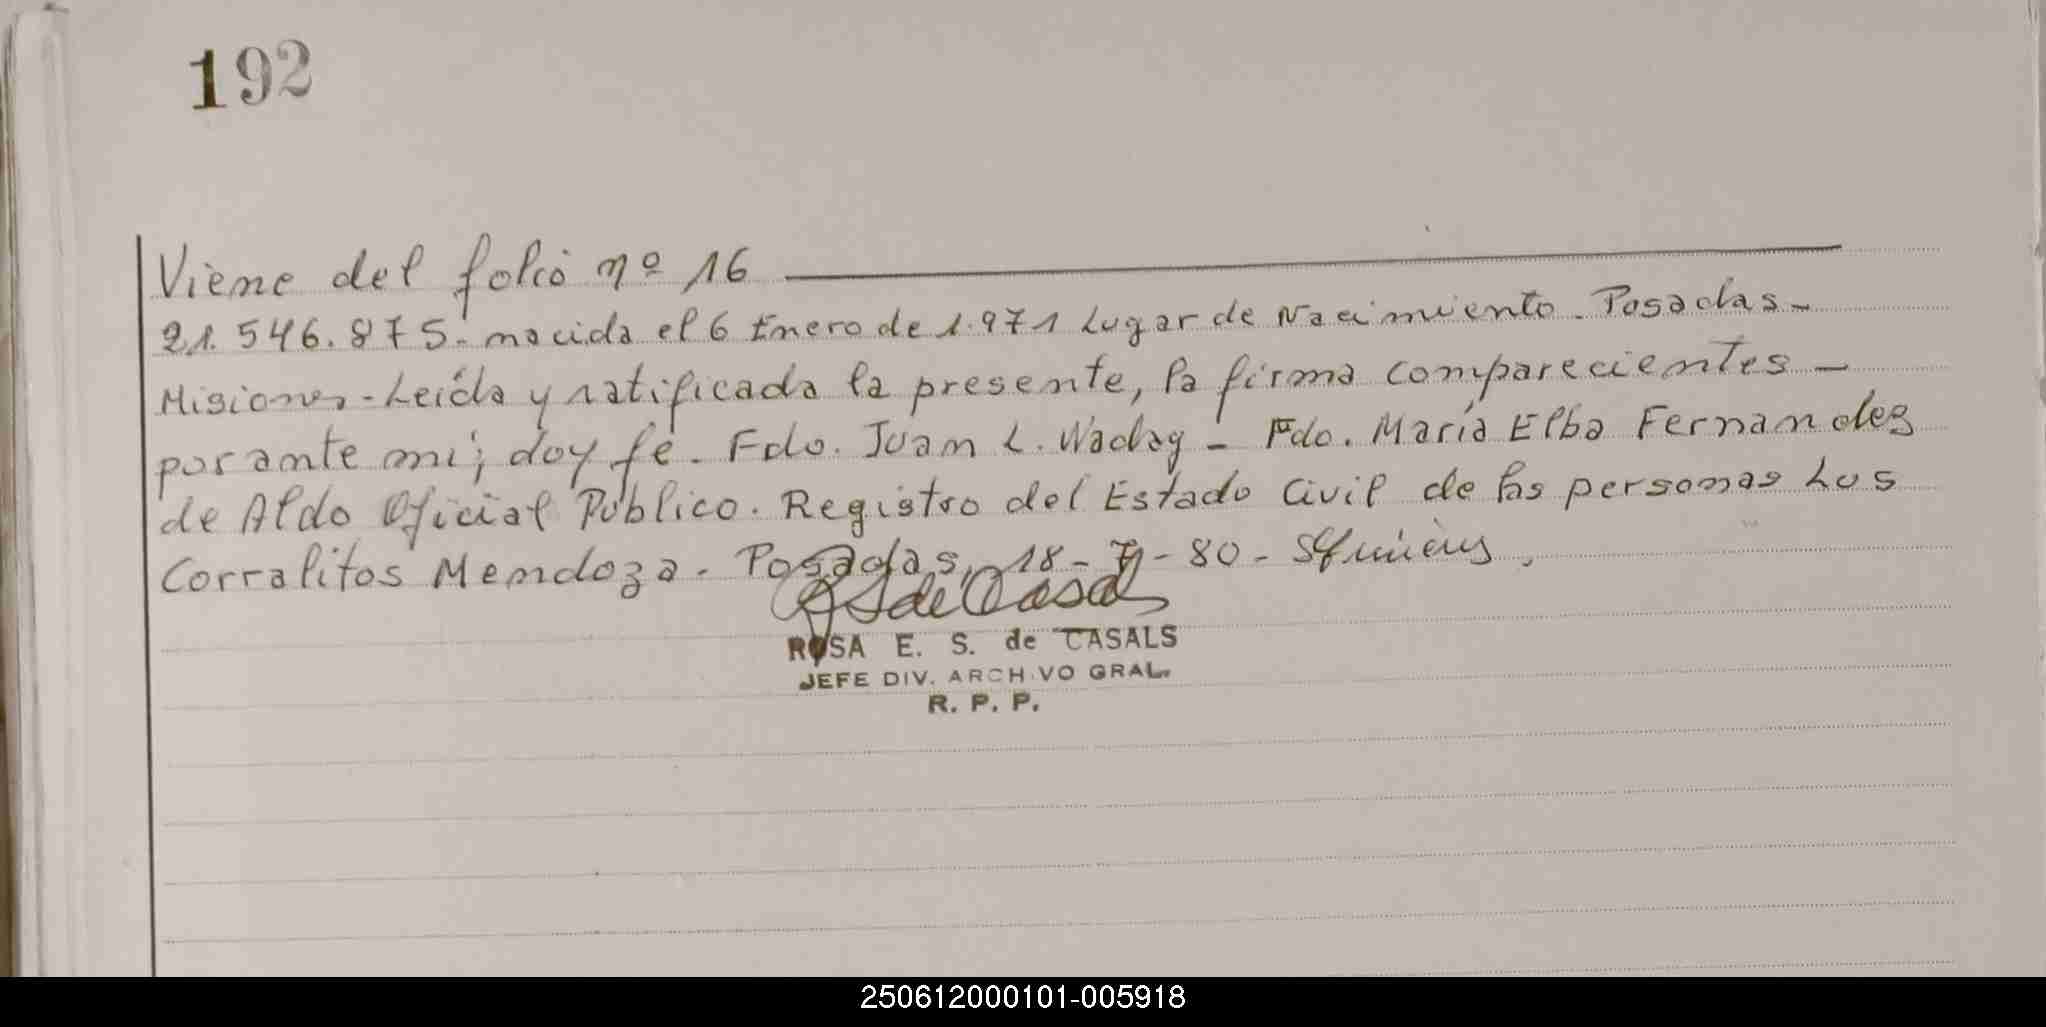 192
Viene del folio nº 16
21.546.875.- nacida el 6 Enero de 1.971 Lugar de Nacimiento - Posadas -
Misiones - Leída y ratificada la presente, la firma comparecientes -
por ante mi; doy fe. Fdo. Juan L. - Fdo. María Elba Fernandes
de Aldo Oficial Público. Registro del Estado Civil de las personas Los
Corralitos Mendoza. Posadas, 18 - - 80 -
ROSA E. S. de CASALS
JEFE DIV. ARCHIVO GRAL.
R. P. P.
250612000101-005918